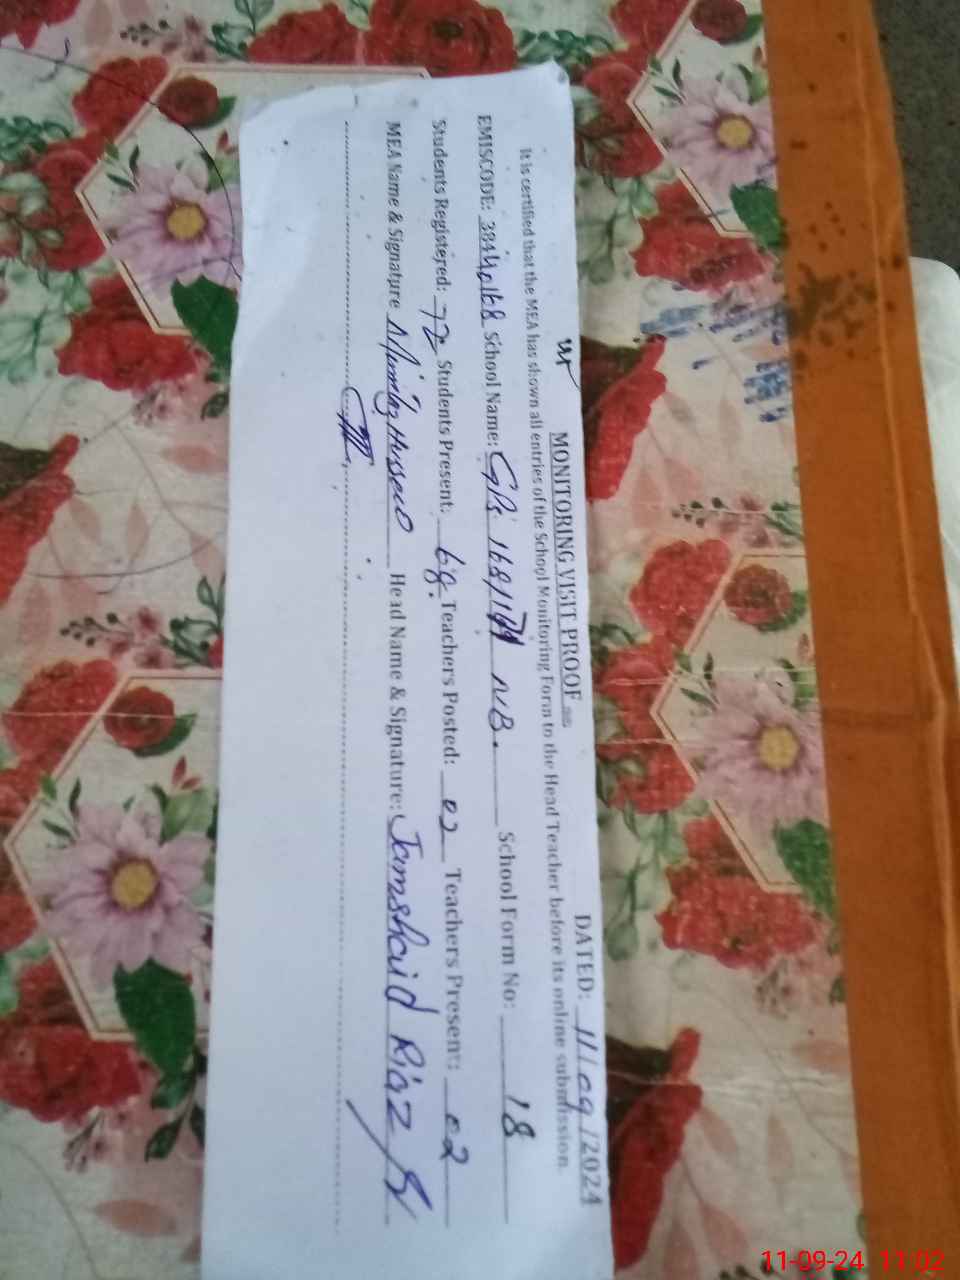 MONITORING VISIT PROOF
DATED: 11/09/2024
It is certified that the MEA has shown all entries of the School Monitoring Form to the Head Teacher before its online submission.
EMISCODE: School Name: GPS NB. School Form No: 18
Students Registered: 72 Students Present: 68 Teachers Posted: 02 Teachers Present: 02
MEA Name & Signature Head Name & Signature: Jamshaid Riaz
11-09-24 11:02